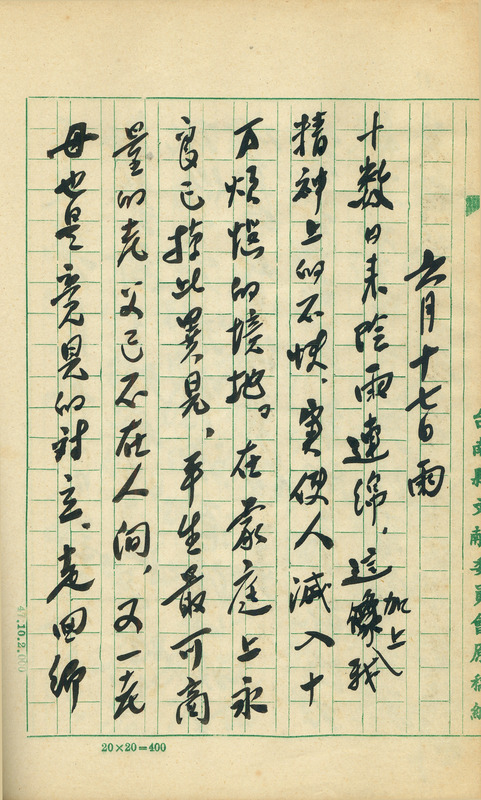 六月十七日雨
十數日來陰雨連綿，這加上我
精神上的不快，實使人滅入十
万煩惱的境地。在家庭上永
良已掠此異見，平生最可商
量的老父已不在人间，又一老
母也是意見的对立、老回鄉
台南縣文献委員會原稿紙
20×20=400
.10.2.